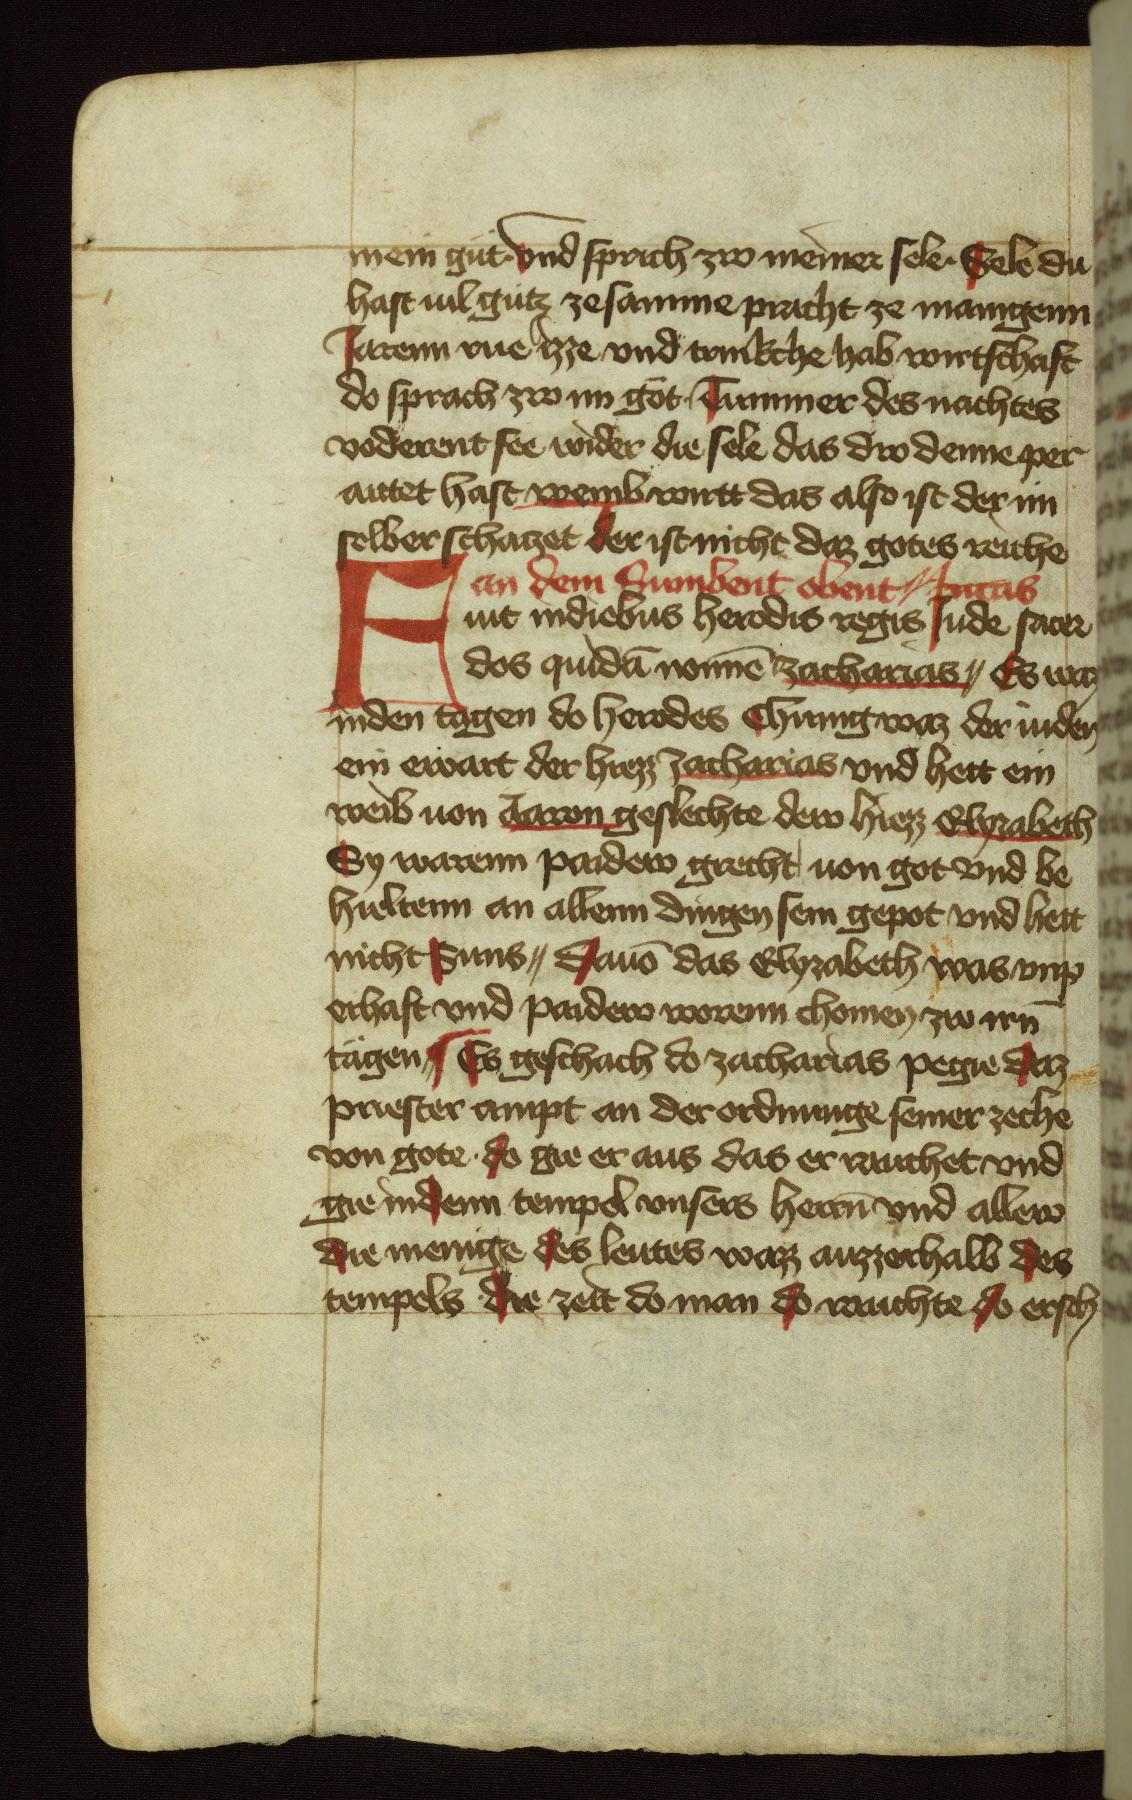 mein gut vnd sprich zw meiner sele Sele du
hast uil gutz ze samme pracht ze manigenn
Jarenn rue izze vnd trinkche hab wirtschaft
do sprach zw im got Tummer des nachtes
voderent see wider die sele das dw denne per
aittet hast wemb wirtt das also ist der im
selber schatzet der ist nicht daz gotes reiche
an dem Sumbent obent Lucas
Fuit in diebus herodis regis Jude sacer
dos quidā nominē zacharias Es waz
inden tagen do herodes Chunig waz der iuden
ein ewart der hiezz zacharias vnd hett ein
weib uon Aaron geslechte dew hiezz Elyzabeth
Sy warenn paidew grecht uon got vnd be
hieltenn an allenn dingen sein gepot vnd hett
nicht Suns dauō das Elyzabeth was vnp
erhaft vnd paidew worenn chomen zw irn̄
tägen Es geschach do zacharias pegie daz
priester ampt an der ordnunge seiner zeche
von gote do gie er aus das er rauchet vnd
gie indenn tempel vnsers herrn̄ vnd allew
die menige des leutes wazz auzzerhalb des
tempels die zeit do man do rauchte do ersch